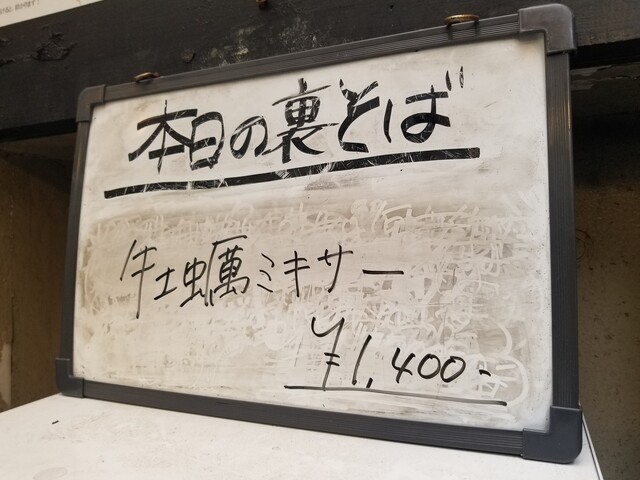 本日の裏そば
牡蠣ミキサー
¥1,400-